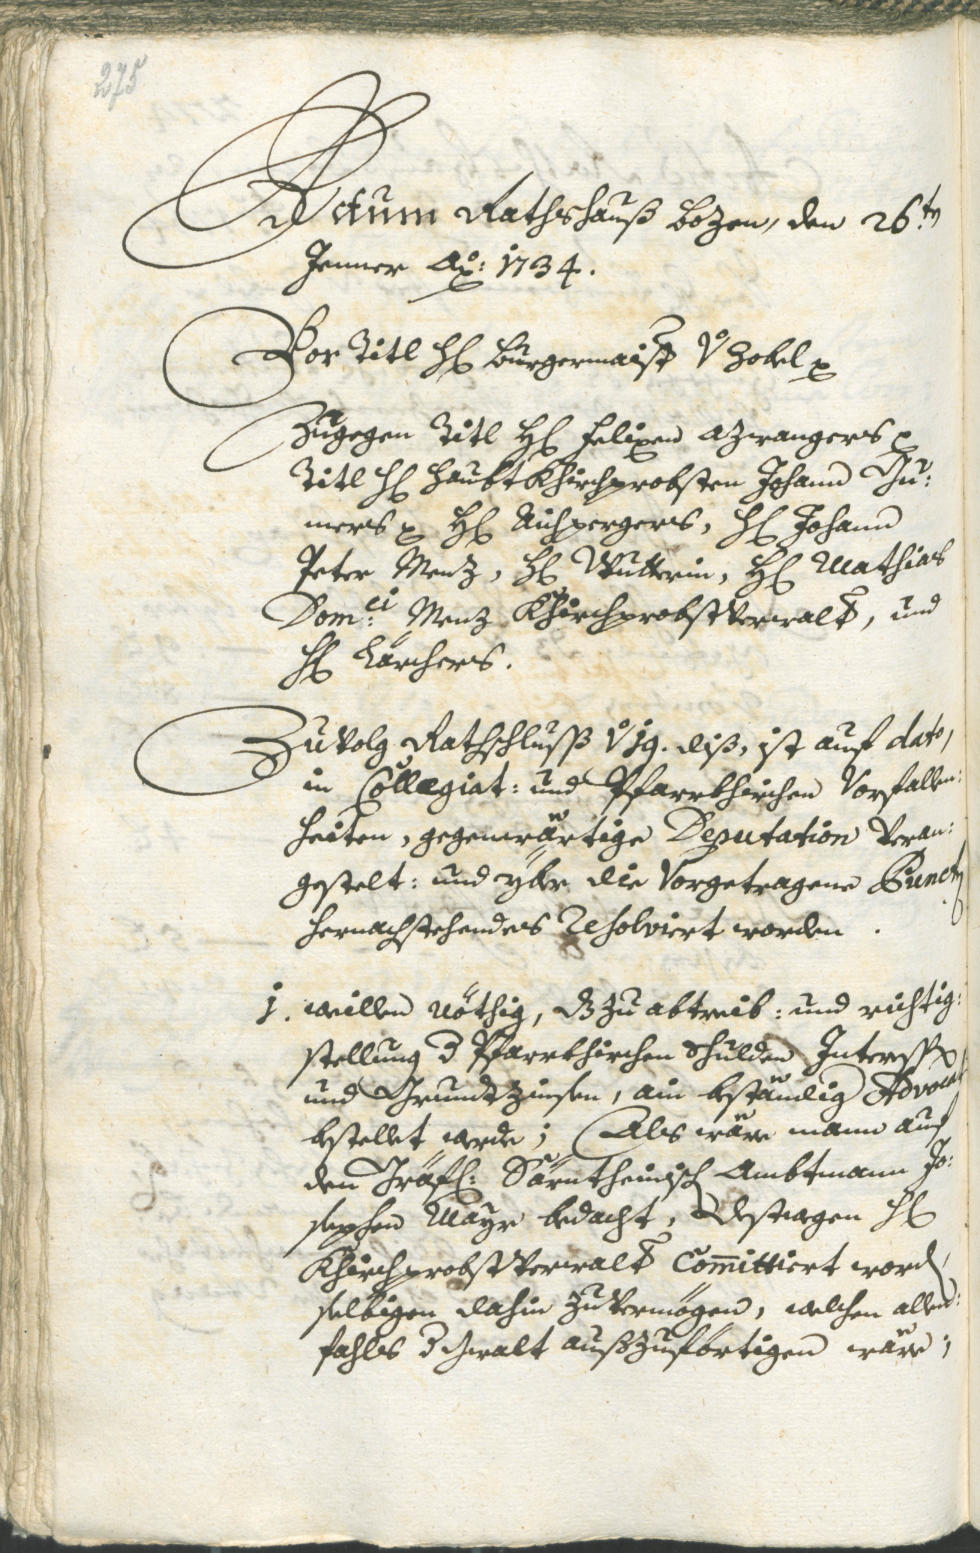 275
Actum Rathshauß Bozen, den 26.ten
Jenner Ao: 1734.
Vor Titl H Burgermaister v Zobel
Zugegen Titl H Felixen Azwangers
Titl H Haubt Khirchprobsten Johann Gu:
mers H Aichpergers, H Johann
Peter Menz, H Wutterin, H Mathias
Dom:ci Menz Khirchprobst Verwalter, und
H Lärchers.
Zuvolg Rathschluß v 19. diß, ist auf dato,
in Collegiat: und Pfarrkhirchen Vorfallen:
heiten, gegenwärtige Deputation veran:
gestelt: und yber die Vorgetragene Puncten
hernachstehendes resolviert worden.
1. weillen nöthig, dz zu abtreib: und richtig:
stellung d Pfarrkhirchen Schulden Interesse
und Grundtzinsen, ain beständig Advocat
bestellet werde; Als wäre mann auf
den Gräfl: Särntheinisch Ambtmann Jo:
sephen Mayr bedacht, Destwegen H
Khirchprobst Verwalter Committiert worden,
selbigen dahin zu vermögen, welchen allen:
fahls d Gwalt außzufertigen wäre;